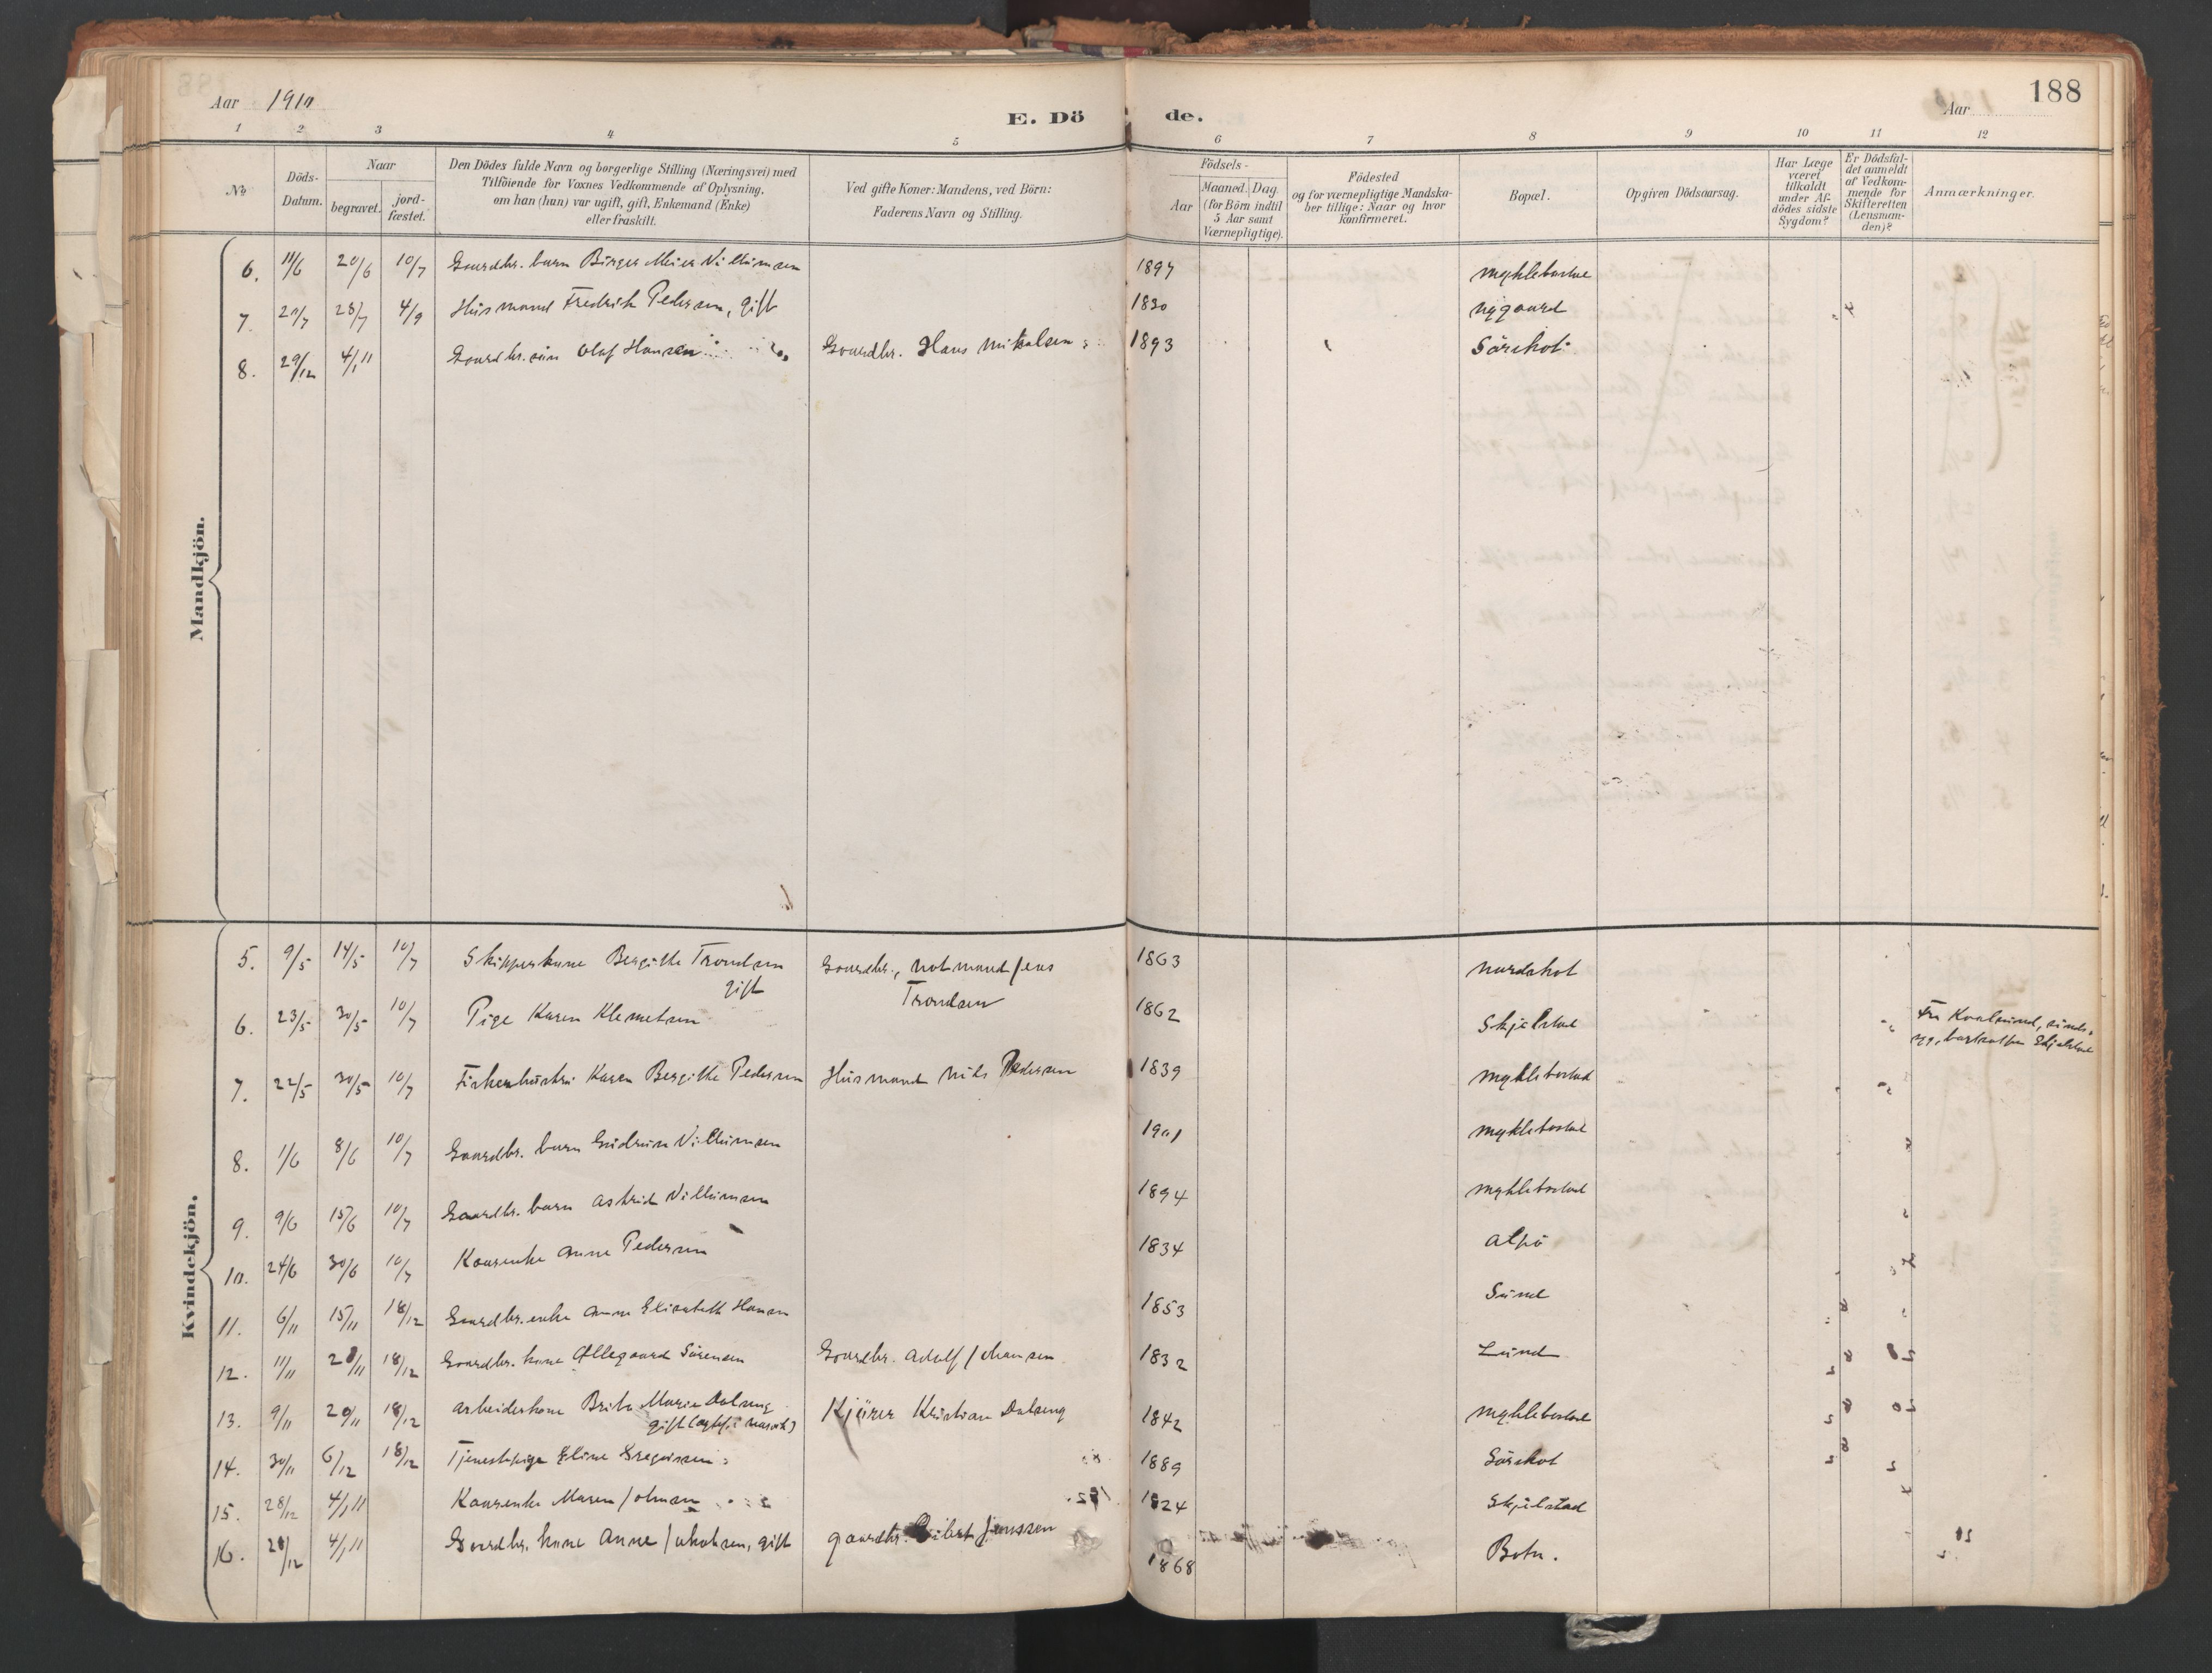 188
Aar 1910
E. Dö
de.
Aar
1 2 3 4 5 6 7 8 9 10 11 12
No
Döds-
Datum.
Naar
begravet.
jord-
fæstet.
Den Dödes fulde Navn og borgerlige Stilling (Næringsvei) med
Tilföiende for Voxnes Vedkommende af Oplysning,
om han (hun) var ugift, gift, Enkemand (Enke)
eller fraskilt.
Ved gifte Koner: Mandens, ved Börn:
Faderens Navn og Stilling.
Födsels-
Aar
Maaned. Dag.
(for Börn indtil
5 Aar samt
Værnepligtige).
Födested
og for værnepligtige Mandska-
ber tillige: Naar og hvor
konfirmeret.
Bopæl.
Opgiven Dödsaarsag.
Har Læge
været
tilkaldt
under Af-
dödes sidste
Sygdom?
Er Dödsfal-
det anmeldt
af Vedkom-
mende for
Skifteretten
(Lensman-
den)?
Anmærkninger.
Mandkjön.
6. 11/6 20/6 10/7 Gaardbr. barn Birger Meier Villumsen 1897 Myklebostad
7. 21/7 28/7 4/9 Husmand Fredrik Pedersen, gift 1830 Nygaard
8. 29/12 4/1 11 Gaardbr. sön Olaf Hansen Gaardbr. Hans Mikalsen 1893 Sörskot
Kvindekjön.
5. 9/5 14/5 10/7 Skipperkone Bergithe Trondsen Gaardbr., notmand Jens 1863 Nordskot
gift Trondsen
6. 23/5 30/5 10/7 Pige Karen Klemetsen 1862 Skjelstad Fra Kvalsund,
7. 22/5 30/5 10/7 Karen Bergithe Pedersen Husmand Nils Pedersen 1839 Myklebostad
8. 1/6 8/6 10/7 Gaardbr. barn Gudrun Villumsen 1901 Myklebostad
9. 9/6 15/6 10/7 Gaardbr. barn Astrid Villumsen 1894 Myklebostad
10. 24/6 30/6 10/7 Kaarenke Anne Pedersen 1834
11. 6/11 15/11 18/12 Gaardbr. enke Anne Elisabeth Hansen 1853 Sund
12. 11/11 20/11 18/12 Gaardbr. kone Ollegaard Sörensen Gaardbr. Adolf Johansen 1832 Lund
13. 9/11 20/11 18/12 Arbeiderkone Brita Marie Dalseng Kjörer Kristian Dalseng 1842 Myklebostad
gift
14. 30/11 6/12 18/12 Tjenestepige Eline Gregussen 1889 Sörskot
15. 28/12 4/1 11 Kaarenke Maren Johnsen 1824 Skjelstad
16. 28/12 4/1 11 Gaardbr. kone Anne Jakobsen, gift Gaardbr. Jenssen 1868 Botn.